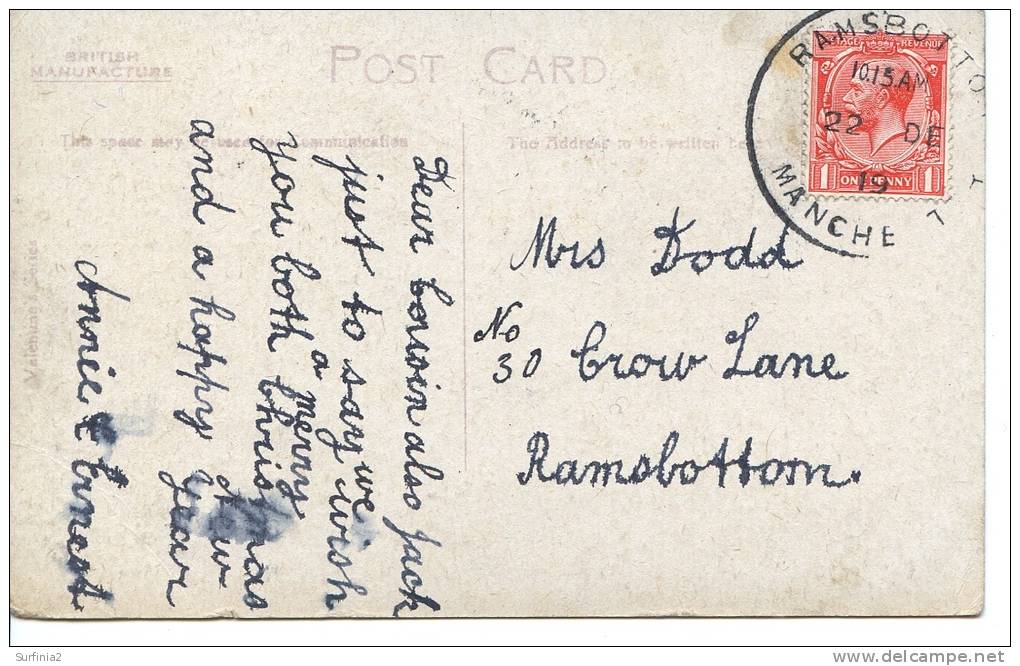 BRITISH
MANUFACTURE
POST CARD
This space may be used for Communication
The Address to be written here
Valentine's Series
RAMSBOTTO
10.15 AM
22 DE
19
MANCHE
POSTAGE REVENUE
1 ONE PENNY 1
Dear Cousin also Jack
just to say we wish
you both a merry Christmas
and a happy New Year
Annie & Ernest
Mrs Dodd
No
30 Crow Lane
Ramsbottom.
Surfinia2
delcampe.net